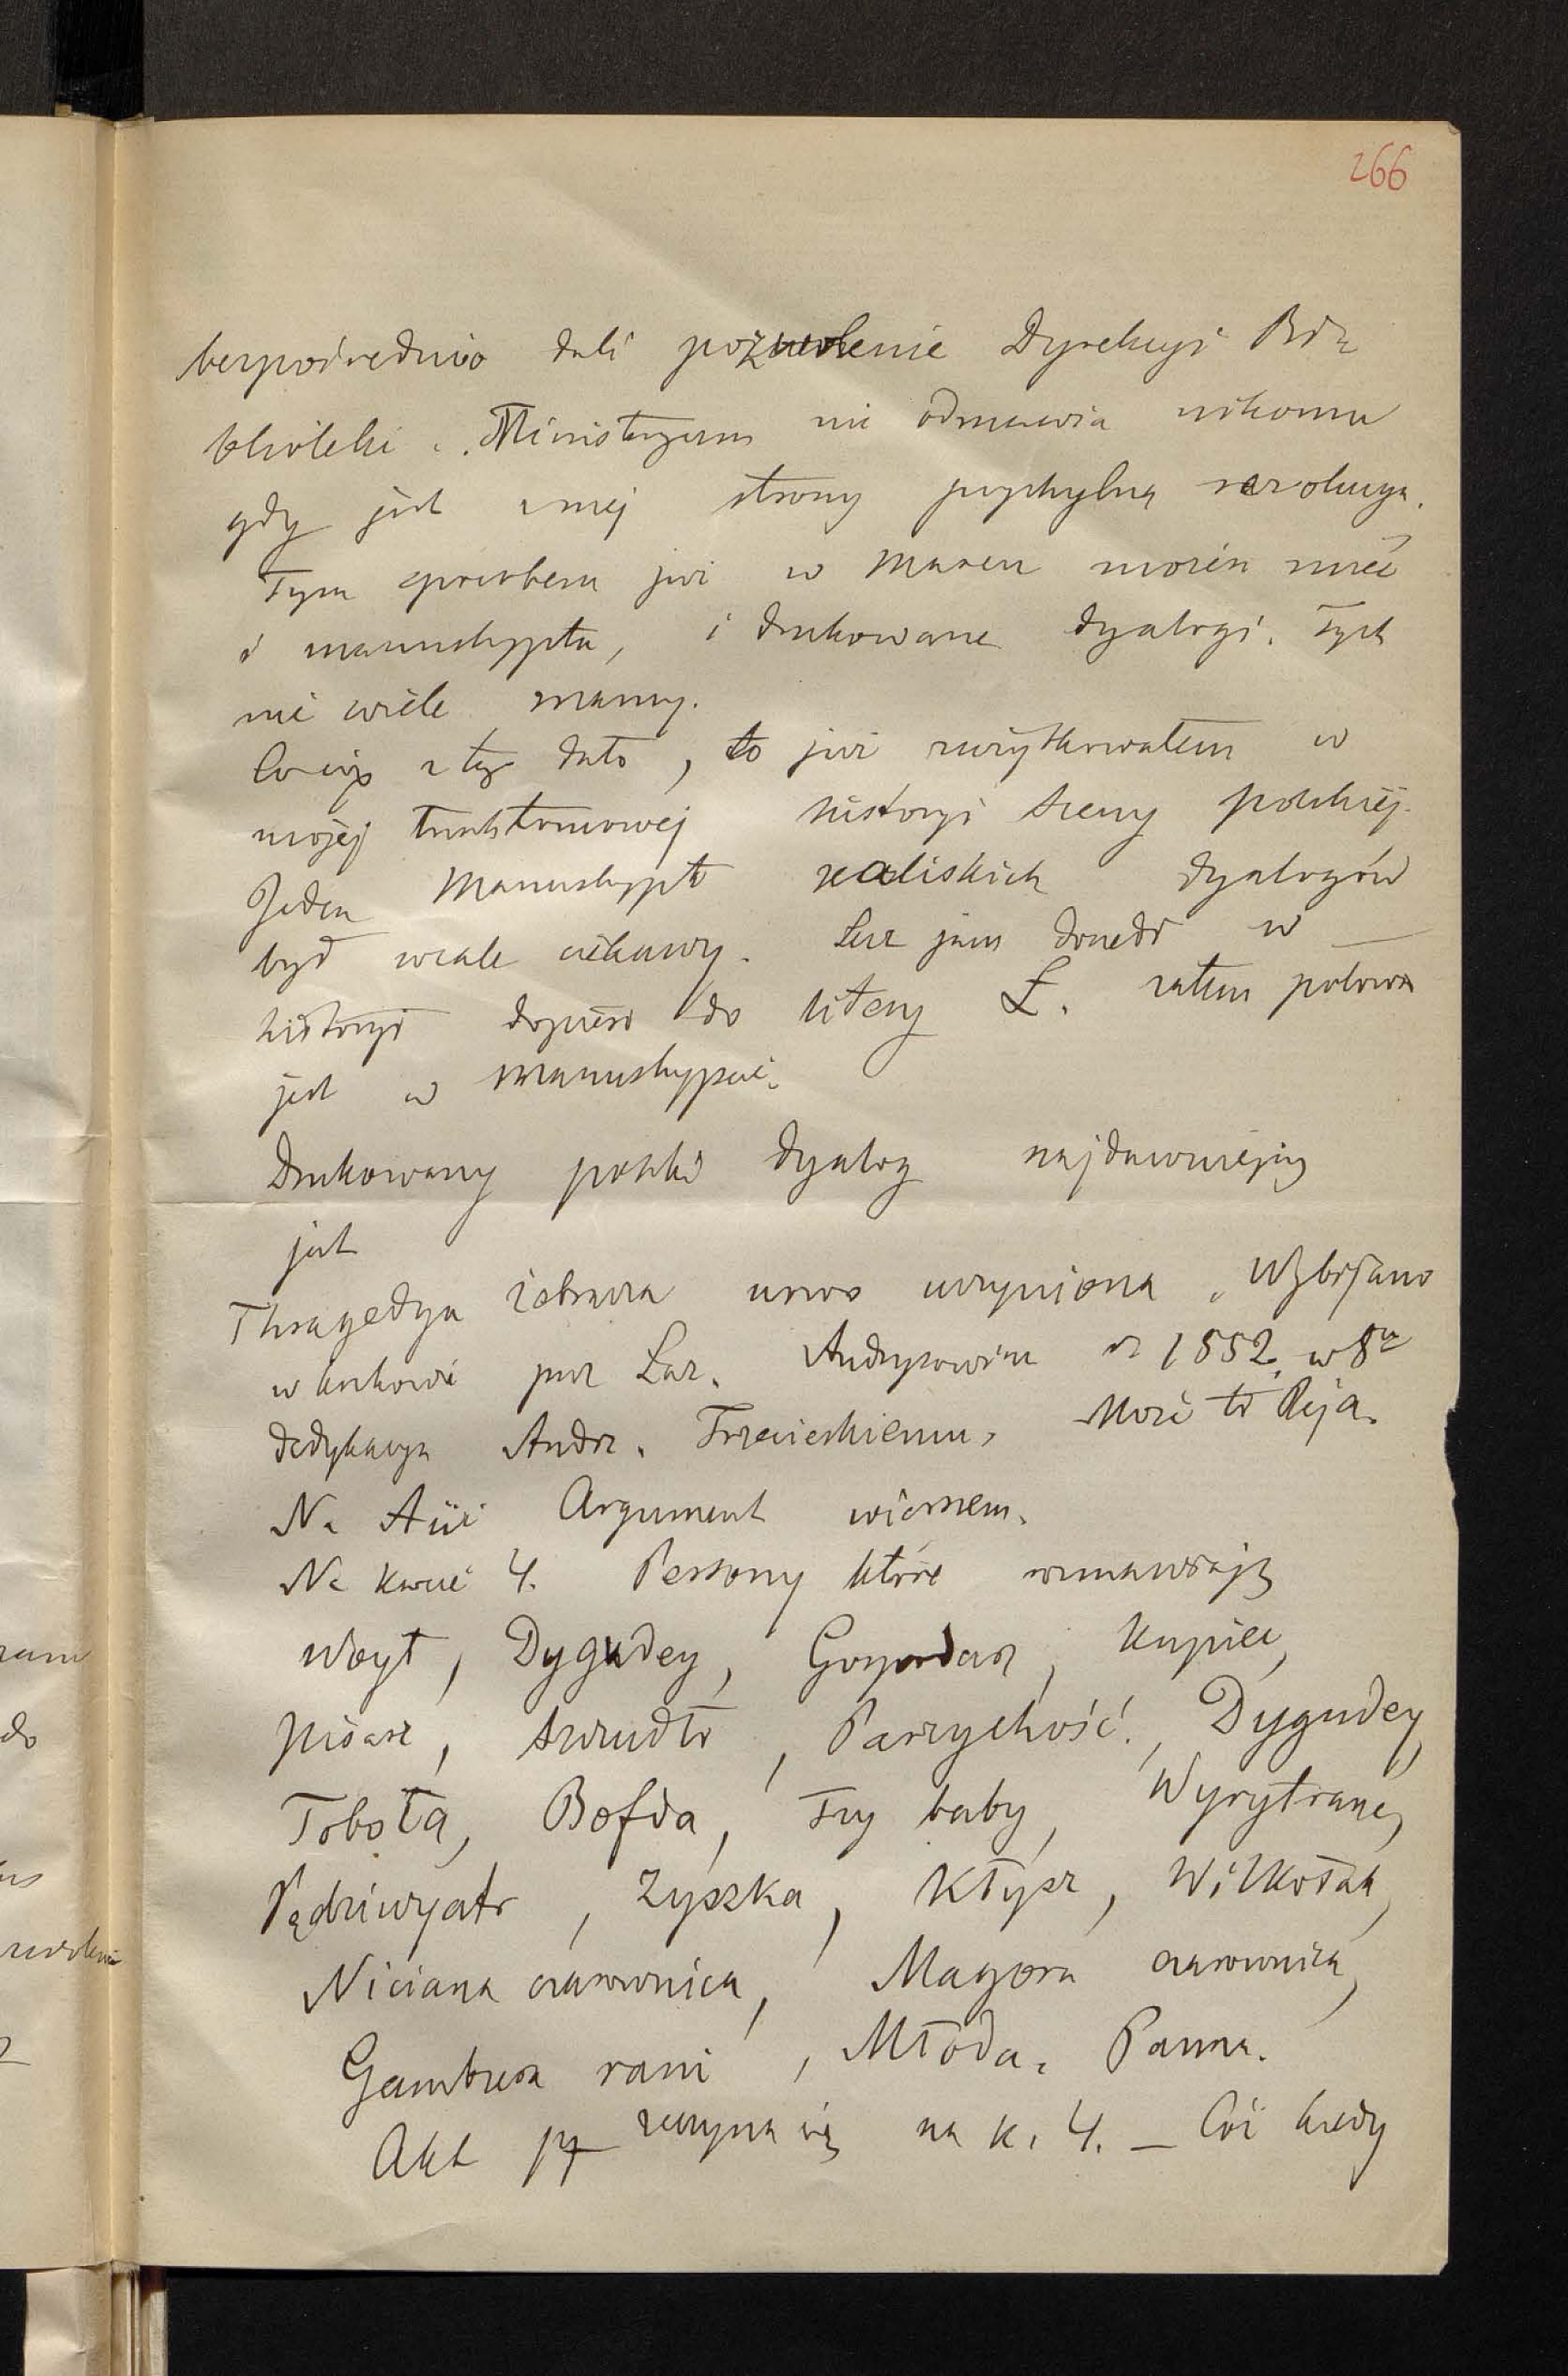 266
bezpośrednio dali pozwolenie Dyrekcyi Bi
blioteki. Ministeryum nie odmawia nikomu
gdy jest z niej strony przychylna rezolucya.
Tym sposobem już w marcu można mieć
i manuskrypta, i drukowane dyalogi. Tych
nie wiele mamy.
Co się z tego dało, to już zużytkowałem w
mojej historyi sceny polskiej.
Jeden Manuskrypt kaliskich dyalogów
był wcale ciekawy. Lecz jam doszedł w
historyi dopiero do litery Ł. zatem połowa
jest w manuskrypcie.
Drukowany polski dyalog najdawniejszy
jest
Thragedya żebracza nowo uczyniona. Wybijano
w Krakowie przez Łaz. Andrysowica r. 1552. w 8ce
dedykacya Andrz. Trzecieskiemu. Może to Reja.
Na Aiii Argument wierszem.
Na karcie 4. Persony które rozmawiają
Woyt, Dygudey, Gospodarz, Kupiec,
Pisarz, Szczudło, Parzychość, Dygudey,
Toboła, Bofda, Trzy baby,
Pędziwyatr, Zyszka, Kłysz, Wilkołak,
Niciana czarownica, Magora czarownica,
rani, Młoda Panna.
Akt zaczyna się na k. 4. – Cóż kiedy